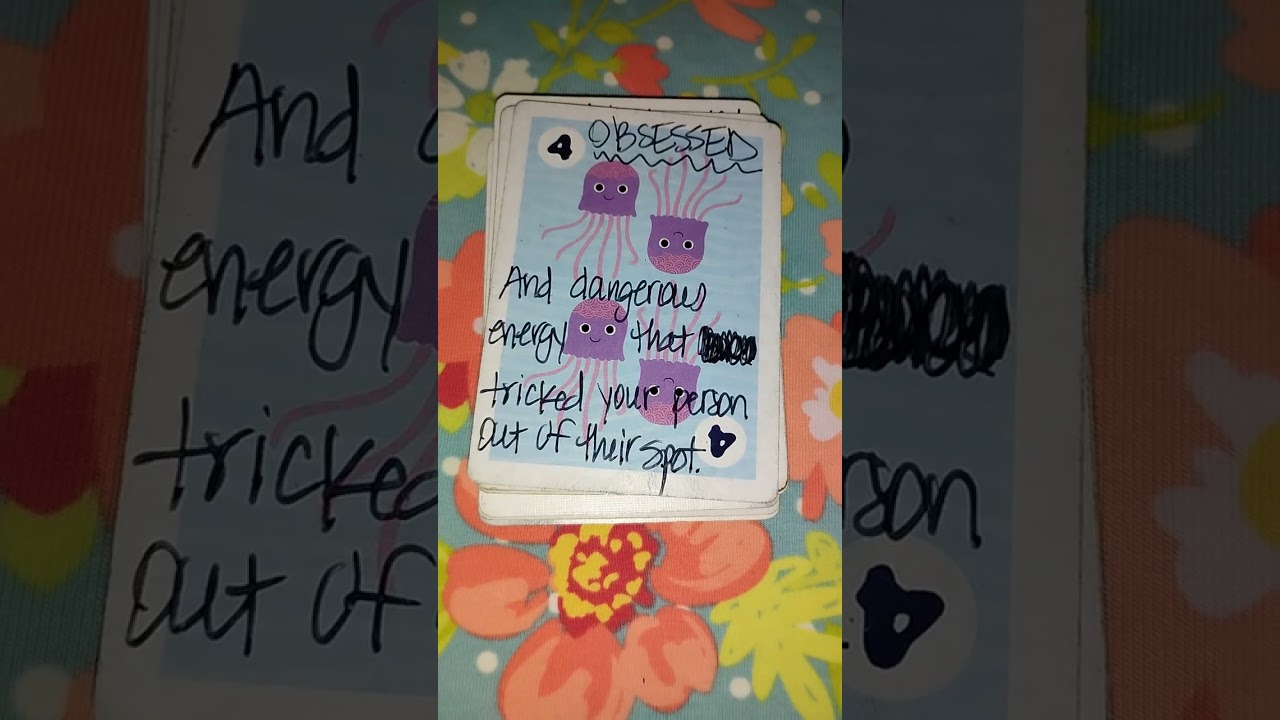 4 OBSESSED
And dangerous
energy that
tricked your person
Out of their spot.
4